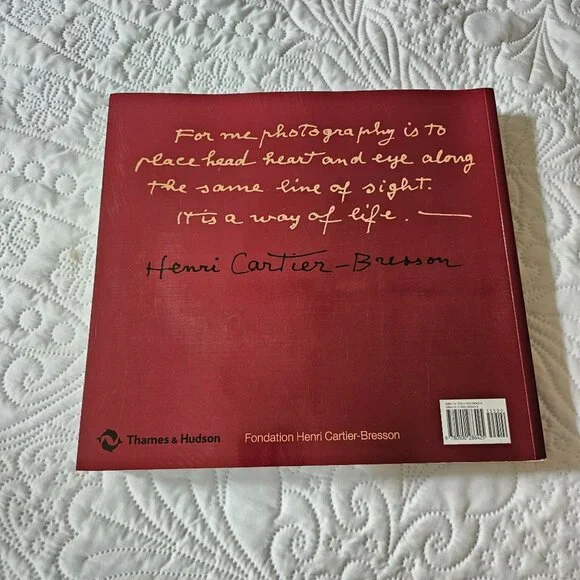 For me photography is to
place head heart and eye along
the same line of sight.
It is a way of life. —
Henri Cartier-Bresson
Thames & Hudson
Fondation Henri Cartier-Bresson